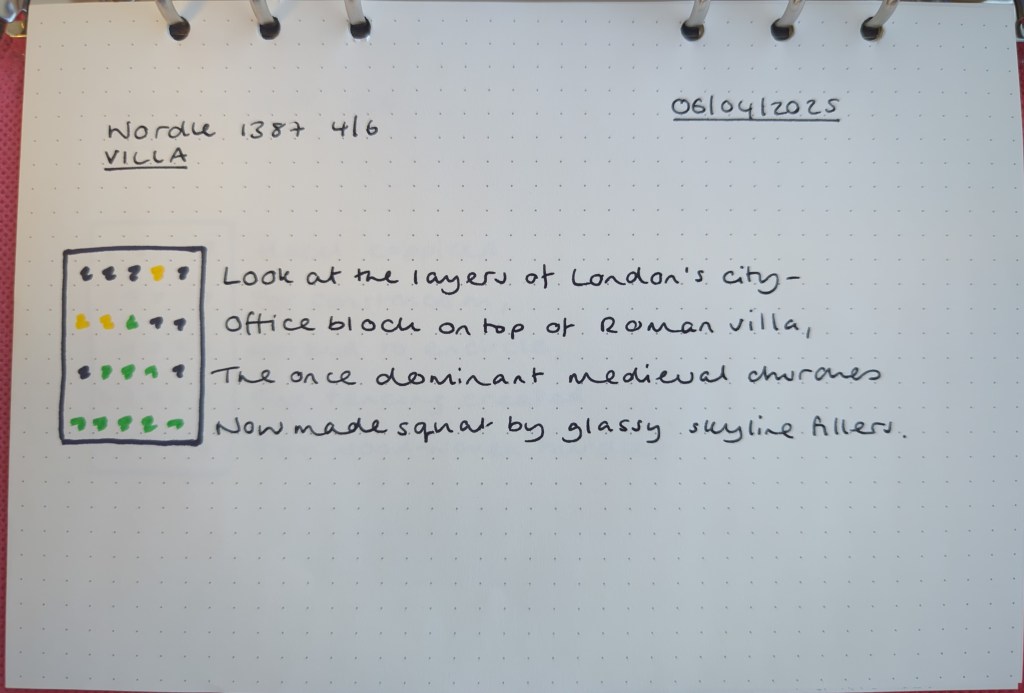 06/04/2025
Wordle 1387 4/6
VILLA
Look at the layers of London's city-
Office block on top of Roman villa,
The once dominant medieval churches
Now made squat by glassy skyline fillers.